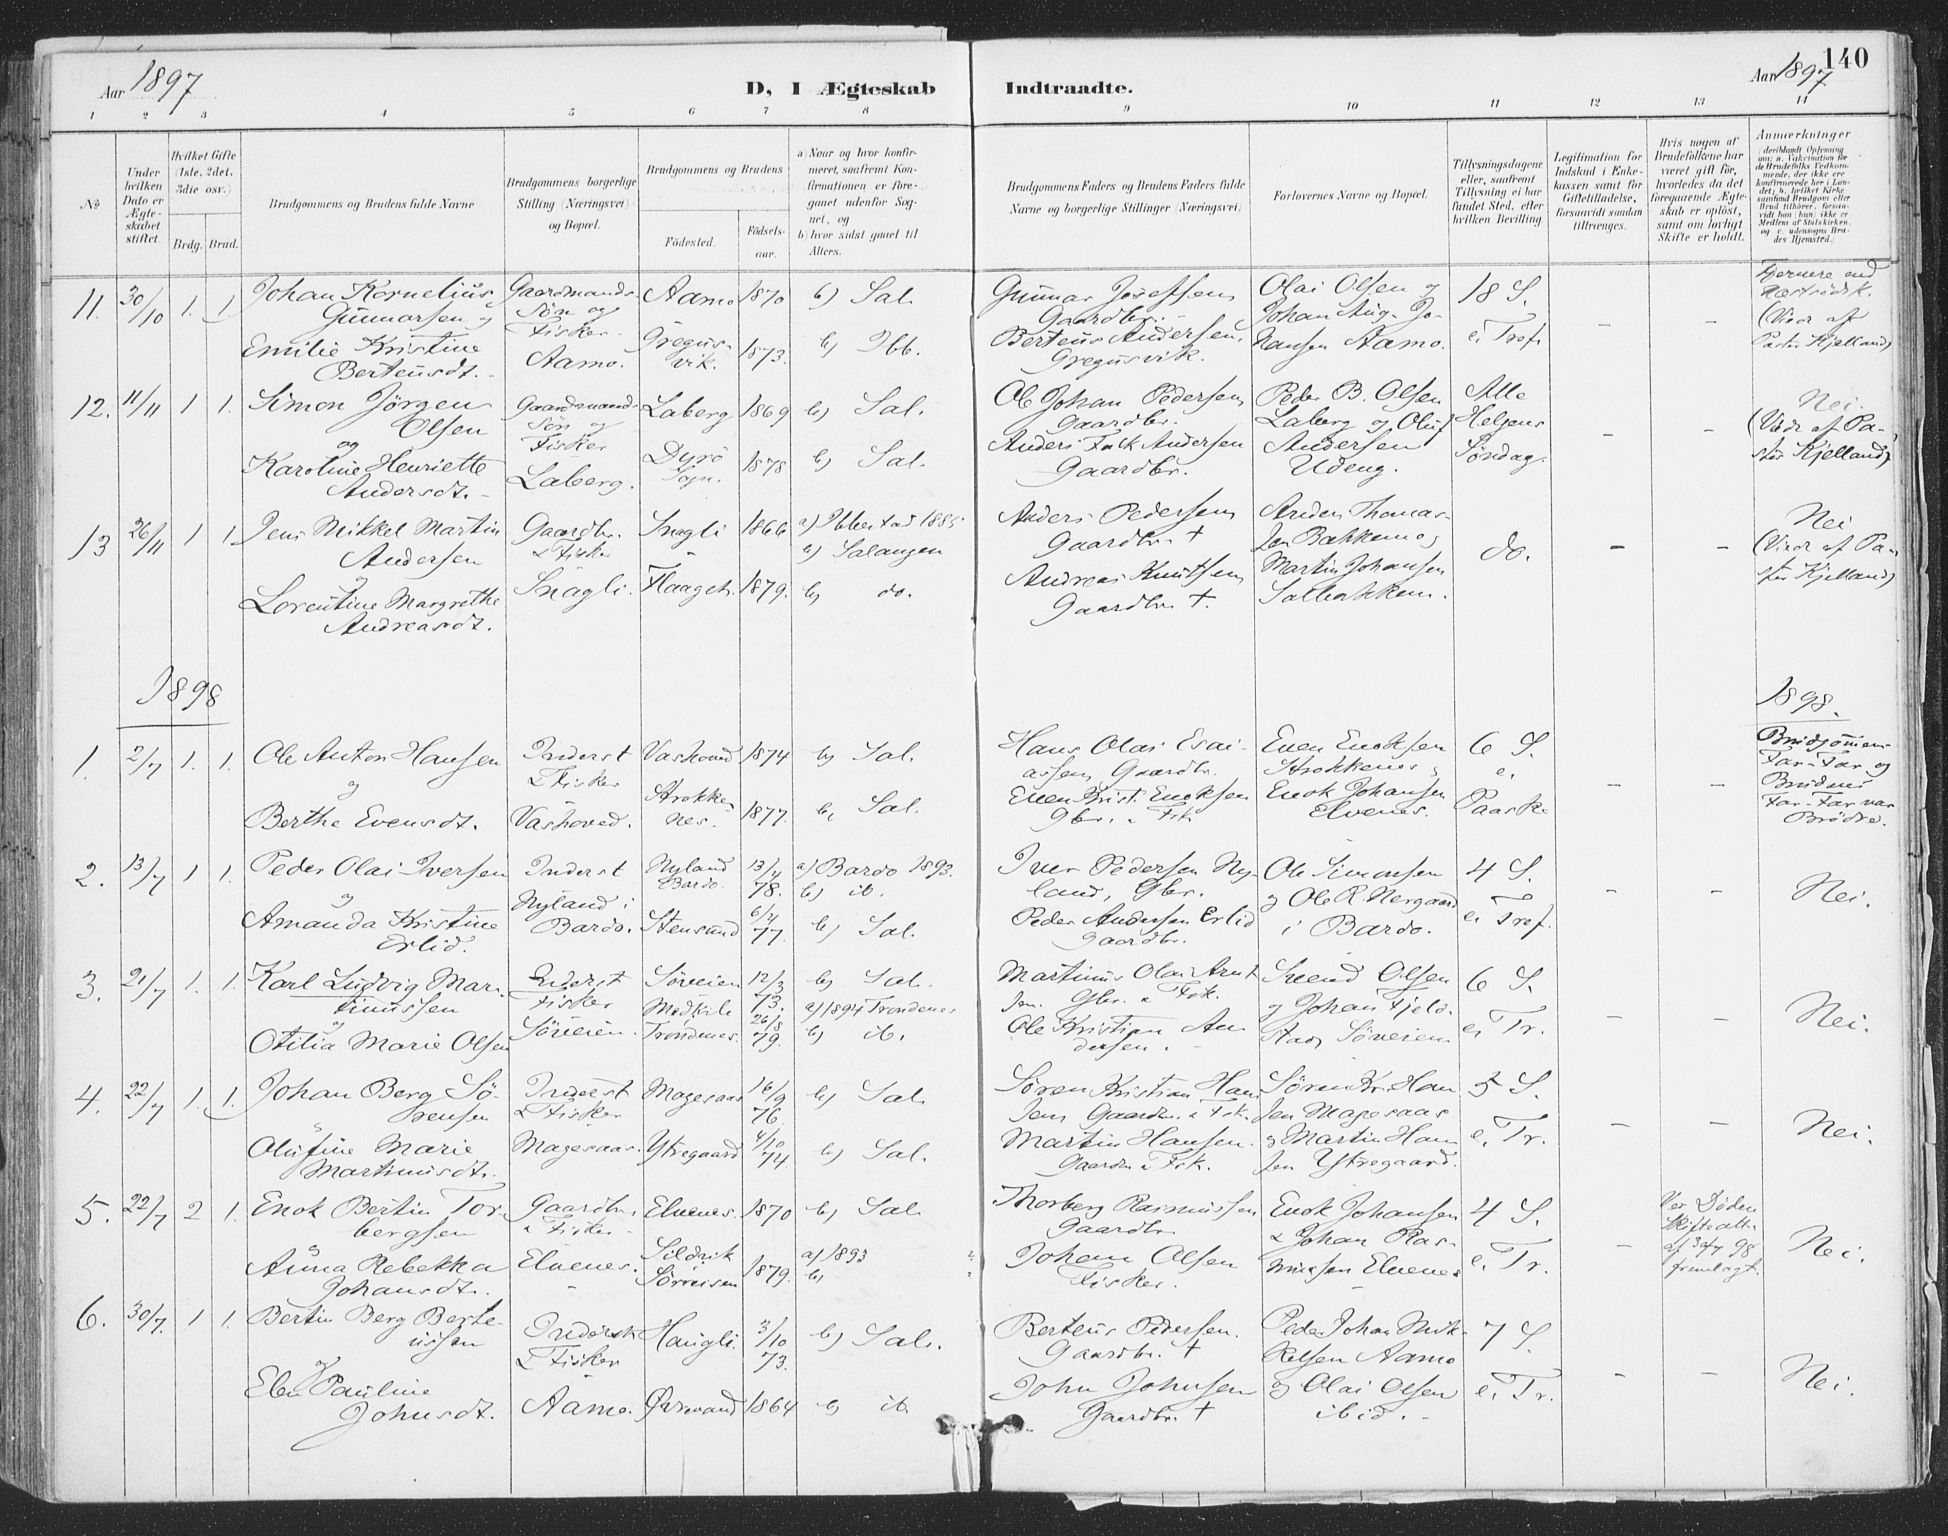 140
Aar 1897
D, I Ægteskab Indtraadte.
Aar 1897
1 2 3 4 5 6 7 8 9 10 11 12 13 14
№
Under hvilken Dato er Ægteskabet stiftet.
Hvilket Gifte (1ste, 2det, 3die osv.)
Brdg. Brud.
Brudgommens og Brudens fulde Navne
Brudgommens borgerlige Stilling (Næringsvei) og Bopæl.
Brudgommens og Brudens
Fødested.
Fødselsaar.
a) Naar og hvor konfirmeret, saafremt Konfirmationen er foregaaet udenfor Sognet, og
b) hvor sidst gaaet til Alters.
Brudgommens Faders og Brudens Faders fulde Navne og borgerlige Stillinger (Næringsvei)
Forlovernes Navne og Bopæl.
Tillysningsdagene eller, saafremt Tillysning ei har fundet Sted, efter hvilken Bevilling.
Legitimation for Indskud i Enkekassen samt for Giftetilladelse, forsaavidt saadan tiltrænges.
Hvis nogen af Brudefolkene har været gift før, hvorledes da det foregaaende Ægteskab er opløst, samt om lovligt Skifte er holdt.
Anmærkninger
11. 30/10 1. 1.
Johan Kornelius Gunnarsen og
Emilie Kristine Berteusdt.
Gaardmands-Søn og Fisker
Aamo.
Aamo 1870 b) Sal.
Gregusvik. 1873. b) Ibb.
Gunnar Josefsen Gaardbr.
Berteus Andersen, Gregusvik.
Olai Olsen og Johan Aug. Johansen Aamo.
18 S. e. Tref.
– –
Fjernere end Næstsødsk.
(Viedt af Pastor Kjelland)
12. 11/11 1 1.
Simon Jørgen Olsen
og
Karoline Henriette Andersdt.
Gaardmands-Søn og Fisker
Laberg.
Laberg 1869 b) Sal.
Dyrø Sogn. 1878 b) Sal.
Ole Johan Pedersen Gaardbr.
Anders Falk Andersen Gaardbr.
Peder B. Olsen Laberg og Oluf Andersen Udeng.
Alle Helgens Søndag.
– –
Nei.
(Viedt af Pastor Kjelland)
13 26/11 1 1.
Jens Mikkel Martin Andersen
og
Lorentine Margrethe Andreasdt.
Gaardbr. & Fisker
Snagli.
Snagli 1866 a) Ibbestad 1885
b) Salangen
Flaaget. 1879. b) do.
Anders Pedersen Gaardbr. †
Andreas Knutsen Gaardbr. †.
Anders Thomassen Bækkemo
Martin Johansen
do.
– –
Nei
(Viedt af Pastor Kjelland)
1898
1898.
1. 2/7 1. 1.
Ole Anton Hansen
og
Berthe Evensdt.
Inderst & Fisker
Vashoved.
Vashoved 1874 b) Sal.
Strokkenes. 1877. b) Sal.
Hans Olai Esaiassen, Gaardbr.
Even Krist. Enoksen Gbr. & Fsk
Even Enoksen Strokkenes
Enok Johansen Elvenes.
6 S. e. Paaske
– –
Brudgommens Far-Far og Brudens Far-Far var Brødre.
2. 13/7 1 1.
Peder Olai Iversen
og
Amanda Kristine Erlid.
Inderst
Nyland i Bardo.
Nyland Bardo. 13/4 78. a) Bardo 1893.
b) ib.
Stensund 6/4 77. b) Sal.
Iver Pedersen Nyland, Gbr.
Peder Andersen Erlid Gaardbr.
Ole Simonsen og Ole R. Nergaard i Bardo.
4 S. e. Tref.
– –
Nei.
3. 21/7 1. 1.
Karl Ludvig Martinussen
og
Otilia Marie Olsen
Inderst Fisker
Søveien.
Søveien 12/3 73. b) Sal.
Medkile Trondenes. 26/8 79. a) 1894 Trondenes
b) ib.
Martinus Olai Arntsen. Gbr. & Fsk.
Ole Kristian Andersen.
Svend Olsen og Johan Fjeldstad, Søveien
6 S. e. Tr.
– –
Nei.
4. 22/7 1. 1.
Johan Berg Sørensen
Olufine Marie Martinusdt.
Inderst & Fisker
Magesaas.
Magesaas 16/9 76. b) Sal.
Ytregaard 4/10 74 b) Sal.
Søren Kristian Hansen Gaardbr. & Fsk.
Martin Hansen. Gaardbr. & Fsk.
Søren Kr. Hansen Magesaas
og Martin Hansen Ytregaard.
5 S. e. Tr.
– –
Nei.
5. 22/7 2 1.
Enok Bertin Torbergsen
Anna Rebekka Johansdt.
Gaardbr. & Fisker
Elvenes.
Elvenes. 1870 b) Sal.
Sildvik Sørreisen 1879. a) 1893
b)
Thorberg Rasmussen Gaardbr.
Johan Olsen Fisker.
Enok Johansen & Johan Rasmussen Elvenes
4 S. e. Tr.
–
Ved Døden Skifteatt. af 3/7 98 fremlagt.
Nei.
6. 30/7. 1 1.
Bertin Berg Berteussen
og
Pauline Johnsdt.
Inderst & Fisker
Aamo.
Haugli. 3/10 73. b) Sal.
Øvrevand 1864 b) ib.
Berteus Pedersen. Gaardbr. †
John Johnsen Gaardbr. †
Peder Johan Mikkelsen Aamo
og Olai Olsen ibid.
7 S. e. Tr.
– –
Nei.